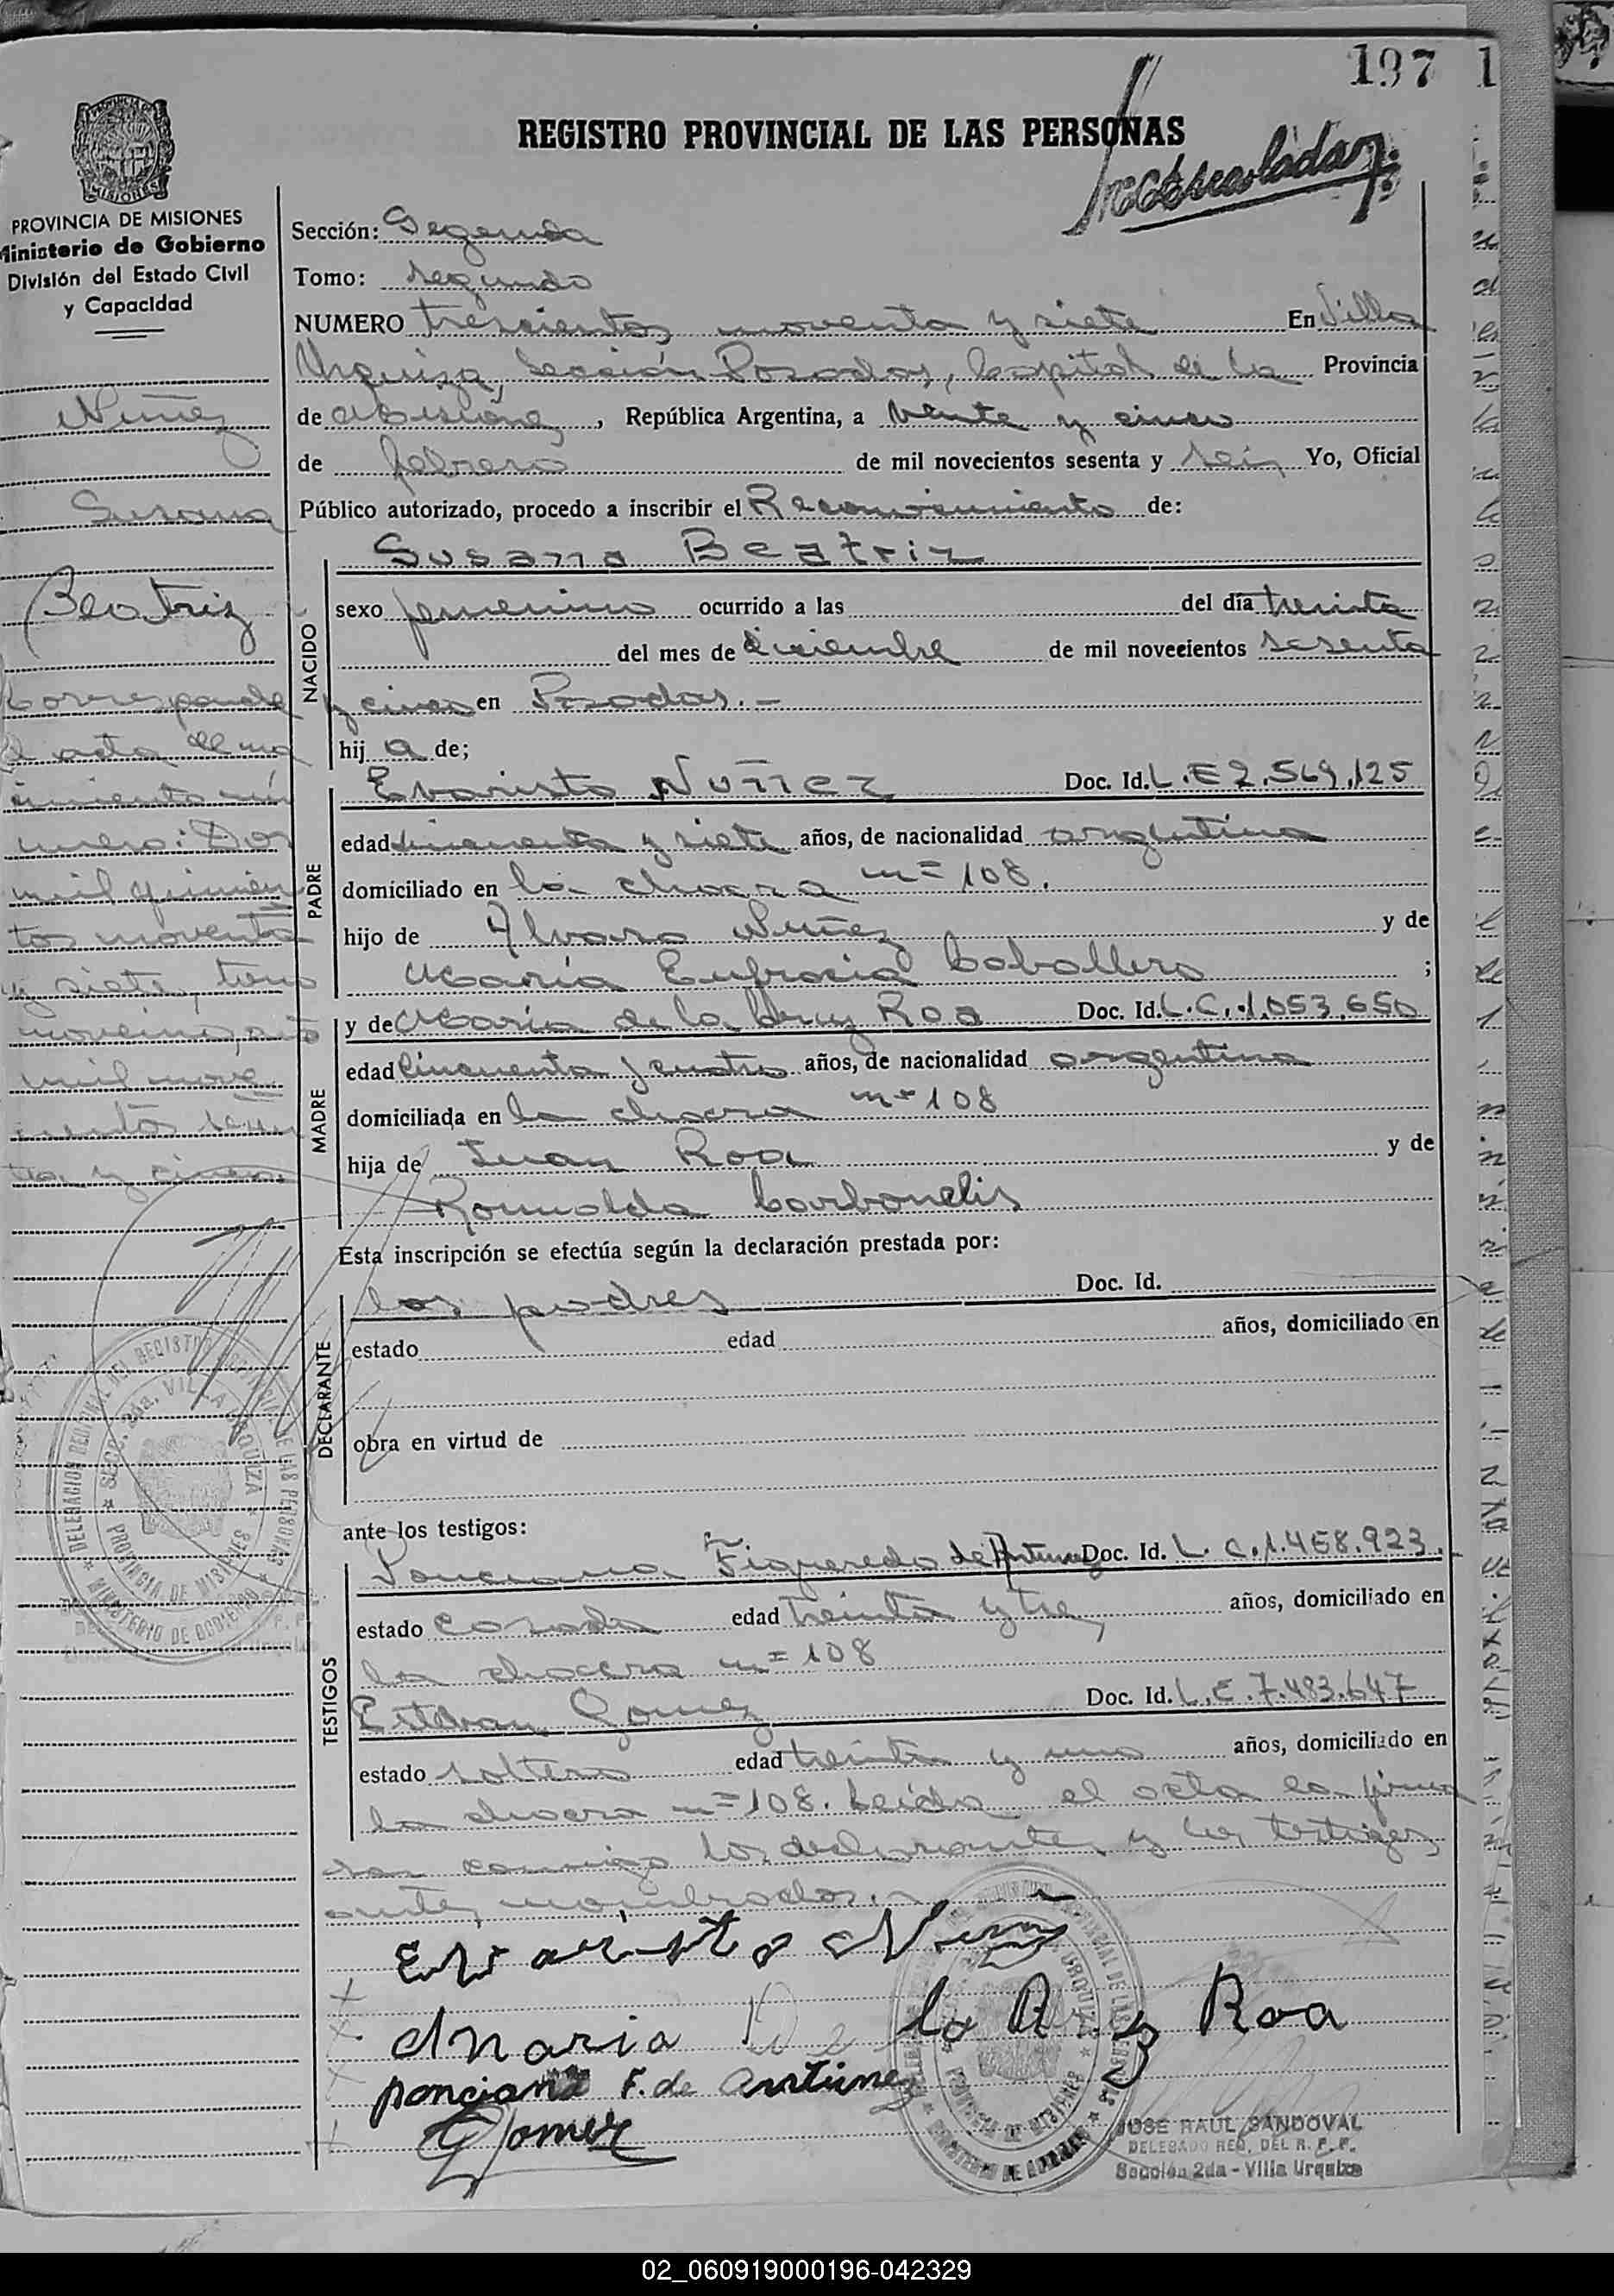 197
REGISTRO PROVINCIAL DE LAS PERSONAS
PROVINCIA DE MISIONES
Ministerio de Gobierno
División del Estado Civil
y Capacidad
Nuñez
Susana
Beatriz
Corresponde
acta de na
cimiento nú
mero: Dos
mil quinien
tos noventa
y siete, tomo
noveno, año
mil nove
cientos sesen
ta y cinco.
Sección: Segunda
Tomo: segundo
NUMERO trescientos noventa y siete En Villa
Urquiza, Sección Posadas, Capital de la Provincia
de Misiones, República Argentina, a veinte y cinco
de febrero de mil novecientos sesenta y seis Yo, Oficial
Público autorizado, procedo a inscribir el Reconocimiento de:
Susana Beatriz
NACIDO
sexo femenino ocurrido a las del día treinta
del mes de diciembre de mil novecientos sesenta
y cinco en Posadas.-
hij a de;
PADRE
Evaristo Nuñez Doc. Id. L.E 2.569.125
edad cincuenta y siete años, de nacionalidad argentina
domiciliado en la chacra nº 108.
hijo de Alvaro Nuñez y de
María Eufrosia Caballero ;
MADRE
y de María de la Cruz Roa Doc. Id. L.C. 1.053.650
edad cincuenta y cuatro años, de nacionalidad argentina
domiciliada en la chacra nº 108
hija de Juan Roa y de
Romualda Carbonelis
Esta inscripción se efectúa según la declaración prestada por:
DECLARANTE
los padres Doc. Id.
estado edad años, domiciliado en
obra en virtud de
ante los testigos:
TESTIGOS
Ponciana Figueredo de Antunez Doc. Id. L.C. 1.468.923.
estado casada edad treinta y tres años, domiciliado en
la chacra nº 108
Esteban Gomez Doc. Id. L.E. 7.483.647
estado soltero edad treinta y uno años, domiciliado en
la chacra nº 108. Leída el acta la firma
ron conmigo los declarantes y los testigos
antes nombrados.
Evaristo Nuñez
Maria De la Cruz Roa
ponciana F. de Antunez
Gomez
DELEGACION REGIONAL DEL REGISTRO PROVINCIAL DE LAS PERSONAS
SECC. 2da. VILLA URQUIZA
PROVINCIA DE MISIONES
MINISTERIO DE GOBIERNO
JOSE RAUL SANDOVAL
DELEGADO REG. DEL R. P. P.
Sección 2da - Villa Urquiza
02_060919000196-042329